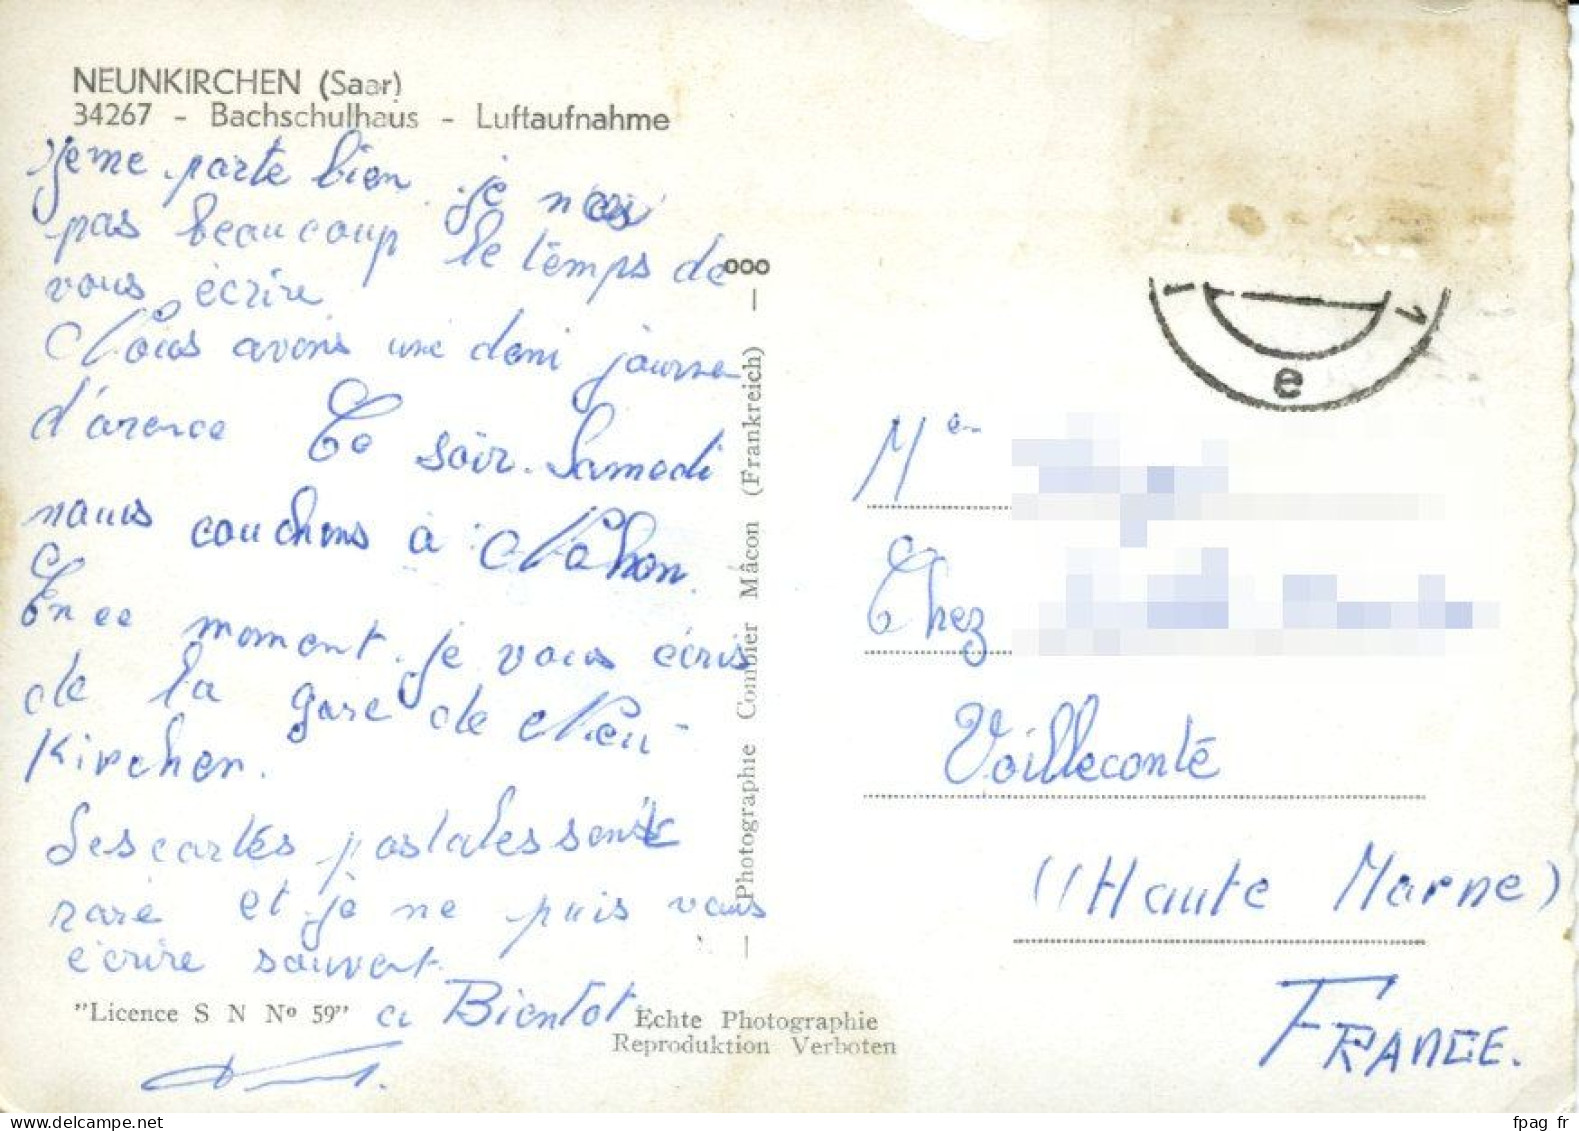 NEUNKIRCHEN (Saar)
34267 - Bachschulhaus - Luftaufnahme
je me porte bien. je n'ai
pas beaucoup le temps de
vous écrire
Nous avons une demi journe
d'avence Ce soir Samedi
nous couchons à Nahon.
En ce moment je vous écris
de la gare de Neu-
Kirchen.
Les cartes postales sont
rare et je ne puis vous
écrire souvent.
a Bientot
"Licence S N Nº 59"
Echte Photographie
Reproduktion Verboten
— Photographie Combier Mâcon (Frankreich) —
ooo
1 1
e
Chez
Voilleconté
(Haute Marne)
FRANCE.
www.delcampe.net
fpag_fr